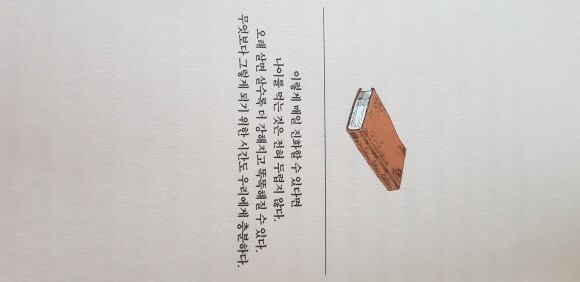 이렇게 매일 진화할 수 있다면
나이를 먹는 것은 전혀 두렵지 않다.
오래 살면 살수록 더 강해지고 똑똑해질 수 있다.
무엇보다 그렇게 되기 위한 시간도 우리에게 충분하다.